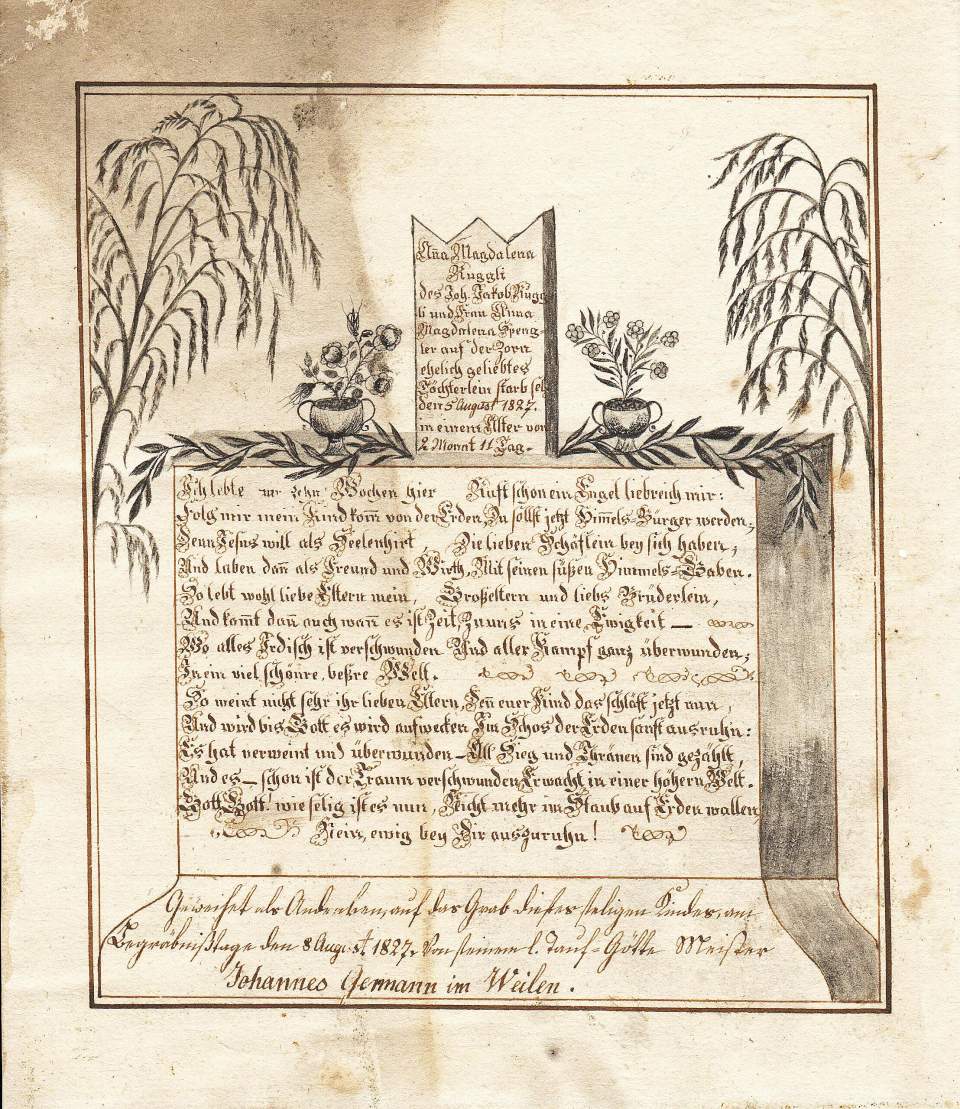 Aña Magdalena
Ruggli
des Joh. Jakob Rugg-
li und Frau Anna
Magdalena Speng-
ler auf der Zorn
ehelich geliebtes
Töchterlein starb sel.
den 5 August 1827.
in einem Alter von
2 Monat 11 Tag.
Ich lebte nur zehn Wochen hier Ruft schon ein Engel liebreich mir:
Folg mir mein Kind kom̄ von der Erden, Du sollst jetzt Him̄els-Bürger werden;
Denn Jesus will als Seelenhirt, Die lieben Schäflein bey sich haben;
Und laben dañ als Freund und Wirth, Mit seinen süßen Himmels-Gaben.
So lebt wohl liebe Eltern mein, Großeltern und liebs Brüderlein,
Und kom̄t dañ auch wañ es ist Zeit, Zu uns in eine Ewigkeit –
Wo alles Irdisch ist verschwunden Und aller Kampf ganz überwunden;
In ein viel schönre, beßre Welt.
So weint nicht sehr ihr lieben Eltern, Deñ euer Kind das schläft jetzt nun,
Und wird bis Gott es wird aufwecken Im Schos der Erden sanft ausruhn:
Es hat verweint und überwunden – All Sieg und Thränen sind gezählt,
Und es – schon ist der Traum verschwunden Erwacht in einer höhern Welt.
Gott, Gott! wie selig ist es nun, Nicht mehr im Staub auf Erden wallen,
Nein, ewig bey Dir auszuruhn!
Geweihet als Andenken, auf das Grab dieses seligen Kindes, am
Begräbnißtage den 8 August. 1827. Von seinem l. Tauf-Götte Meister
Johannes Germann im Weilen.